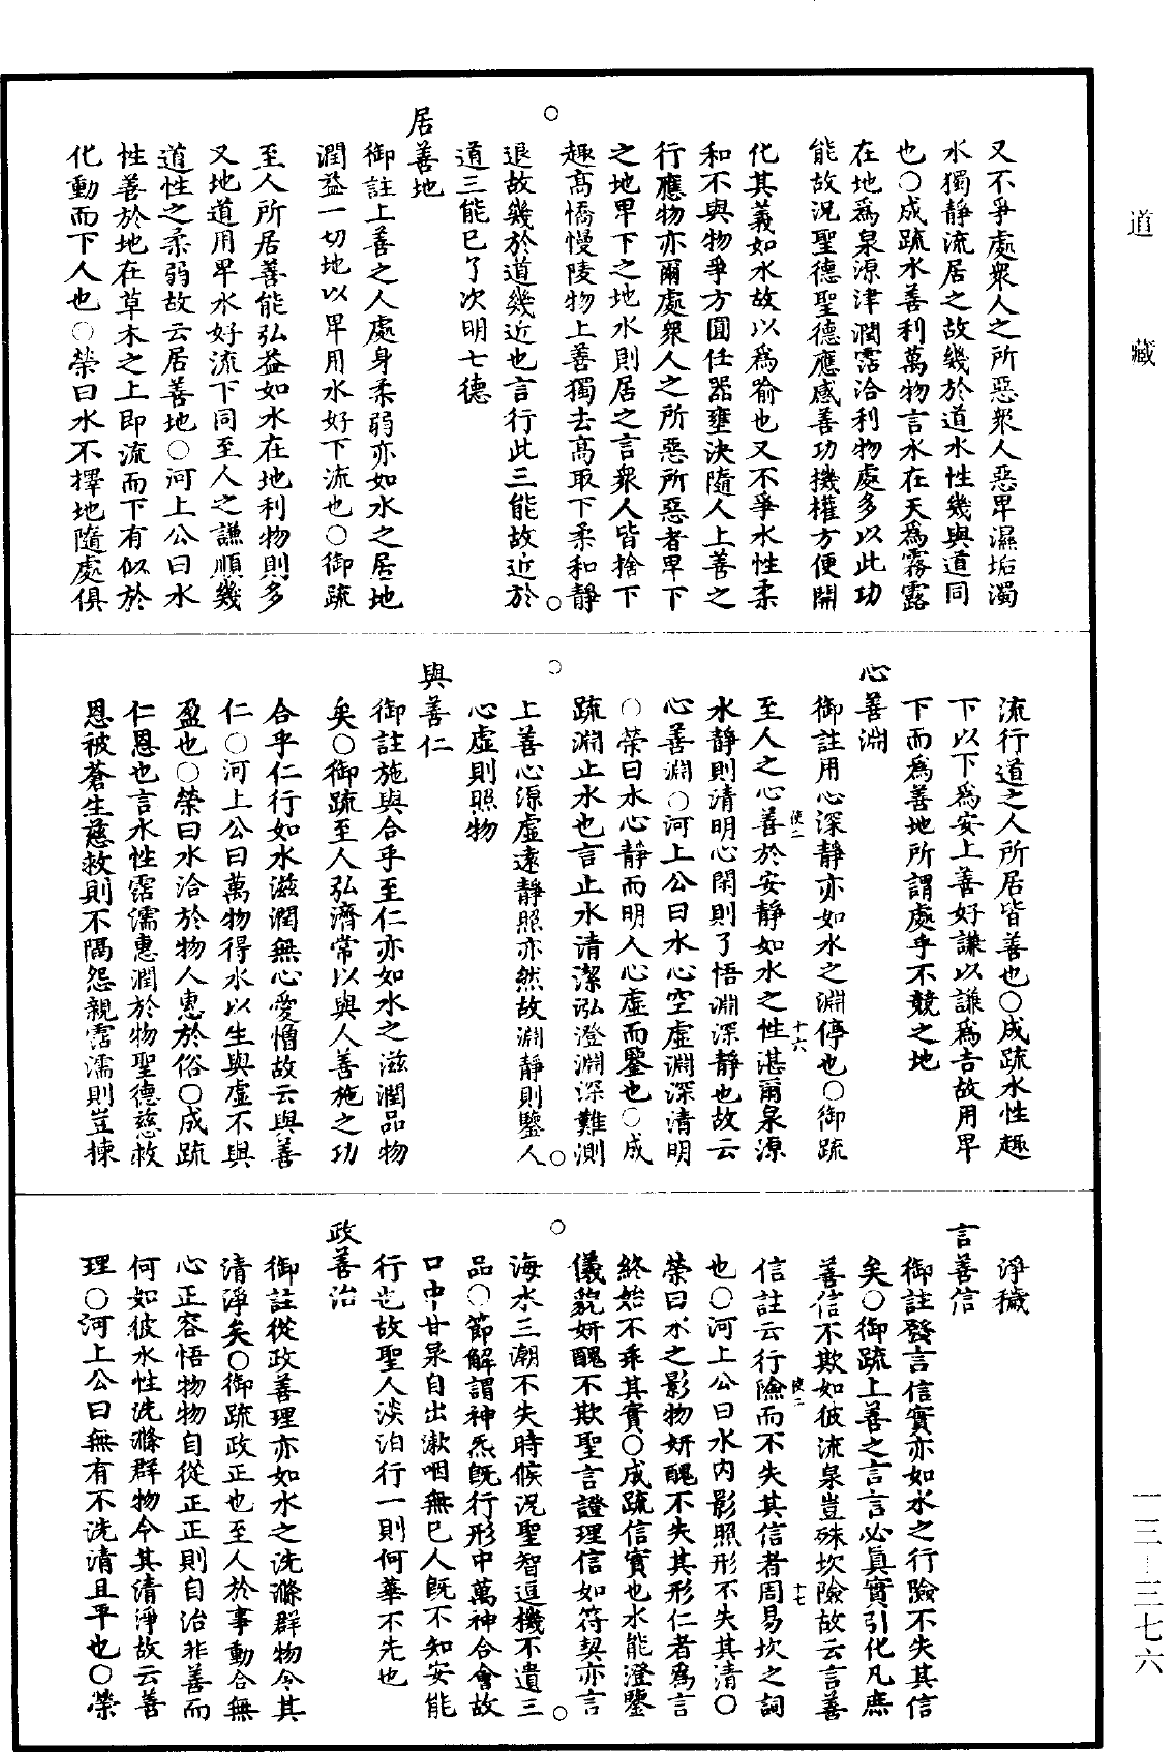 道藏
又不爭處衆人之所惡衆人惡卑濕垢濁
水獨靜流居之故幾於道水性幾與道同
也○成疏水善利萬物言水在天爲霧露
在地爲泉源津潤霑洽利物處多以此功
能故況聖德聖德應感善功機權方便開
化其義如水故以爲喻也又不爭水性柔
和不與物爭方圓任器壅決隨人上善之
行應物亦爾處衆人之所惡所惡者卑下
之地卑下之地水則居之言衆人皆捨下
趣高憍慢陵物上善獨去高取下柔和靜
退故幾於道幾近也言行此三能故近於
道三能已了次明七德
居善地
御註上善之人處身柔弱亦如水之居地
潤益一切地以卑用水好下流也○御疏
至人所居善能弘益如水在地利物則多
又地道用卑水好流下同至人之謙順幾
道性之柔弱故云居善地○河上公曰水
性善於地在草木之上即流而下有似於
化動而下人也○榮曰水不擇地隨處俱
流行道之人所居皆善也○成疏水性趣
下以下爲安上善好謙以謙爲吉故用卑
下而爲善地所謂處乎不競之地
心善淵
御註用心深靜亦如水之淵停也○御疏
使二 十六
至人之心善於安靜如水之性湛爾泉源
水靜則清明心閑則了悟淵深靜也故云
心善淵○河上公曰水心空虛淵深清明
○榮曰水心靜而明人心虛而鑒也○成
疏淵止水也言止水清潔泓澄淵深難測
上善心源虛遠靜照亦然故淵靜則鑒人
心虛則照物
與善仁
御註施與合乎至仁亦如水之滋潤品物
矣○御疏至人弘濟常以與人善施之功
合乎仁行如水滋潤無心愛憎故云與善
仁○河上公曰萬物得水以生與虛不與
盈也○榮曰水洽於物人惠於俗○成疏
仁恩也言水性霑濡惠潤於物聖德慈救
恩被蒼生慈救則不隔怨親霑濡則豈揀
淨穢
言善信
御註發言信實亦如水之行險不失其信
矣○御疏上善之言言必眞實引化凡庶
善信不欺如彼流泉豈殊坎險故云言善
使二 十七
信註云行險而不失其信者周易坎之詞
也○河上公曰水內影照形不失其清○
榮曰水之影物妍醜不失其形仁者爲言
終始不乖其實○成疏信實也水能澄鑒
儀貌妍醜不欺聖言證理信如符契亦言
海水三潮不失時候況聖智逗機不遺三
品○節解謂神炁既行形中萬神合會故
口中甘泉自出漱咽無已人既不知安能
行也故聖人淡泊行一則何華不先也
政善治
御註從政善理亦如水之洗滌群物令其
清淨矣○御疏政正也至人於事動合無
心正容悟物物自從正正則自治非善而
何如彼水性洗滌群物令其清淨故云善
理○河上公曰無有不洗清且平也○榮
一三—三七六